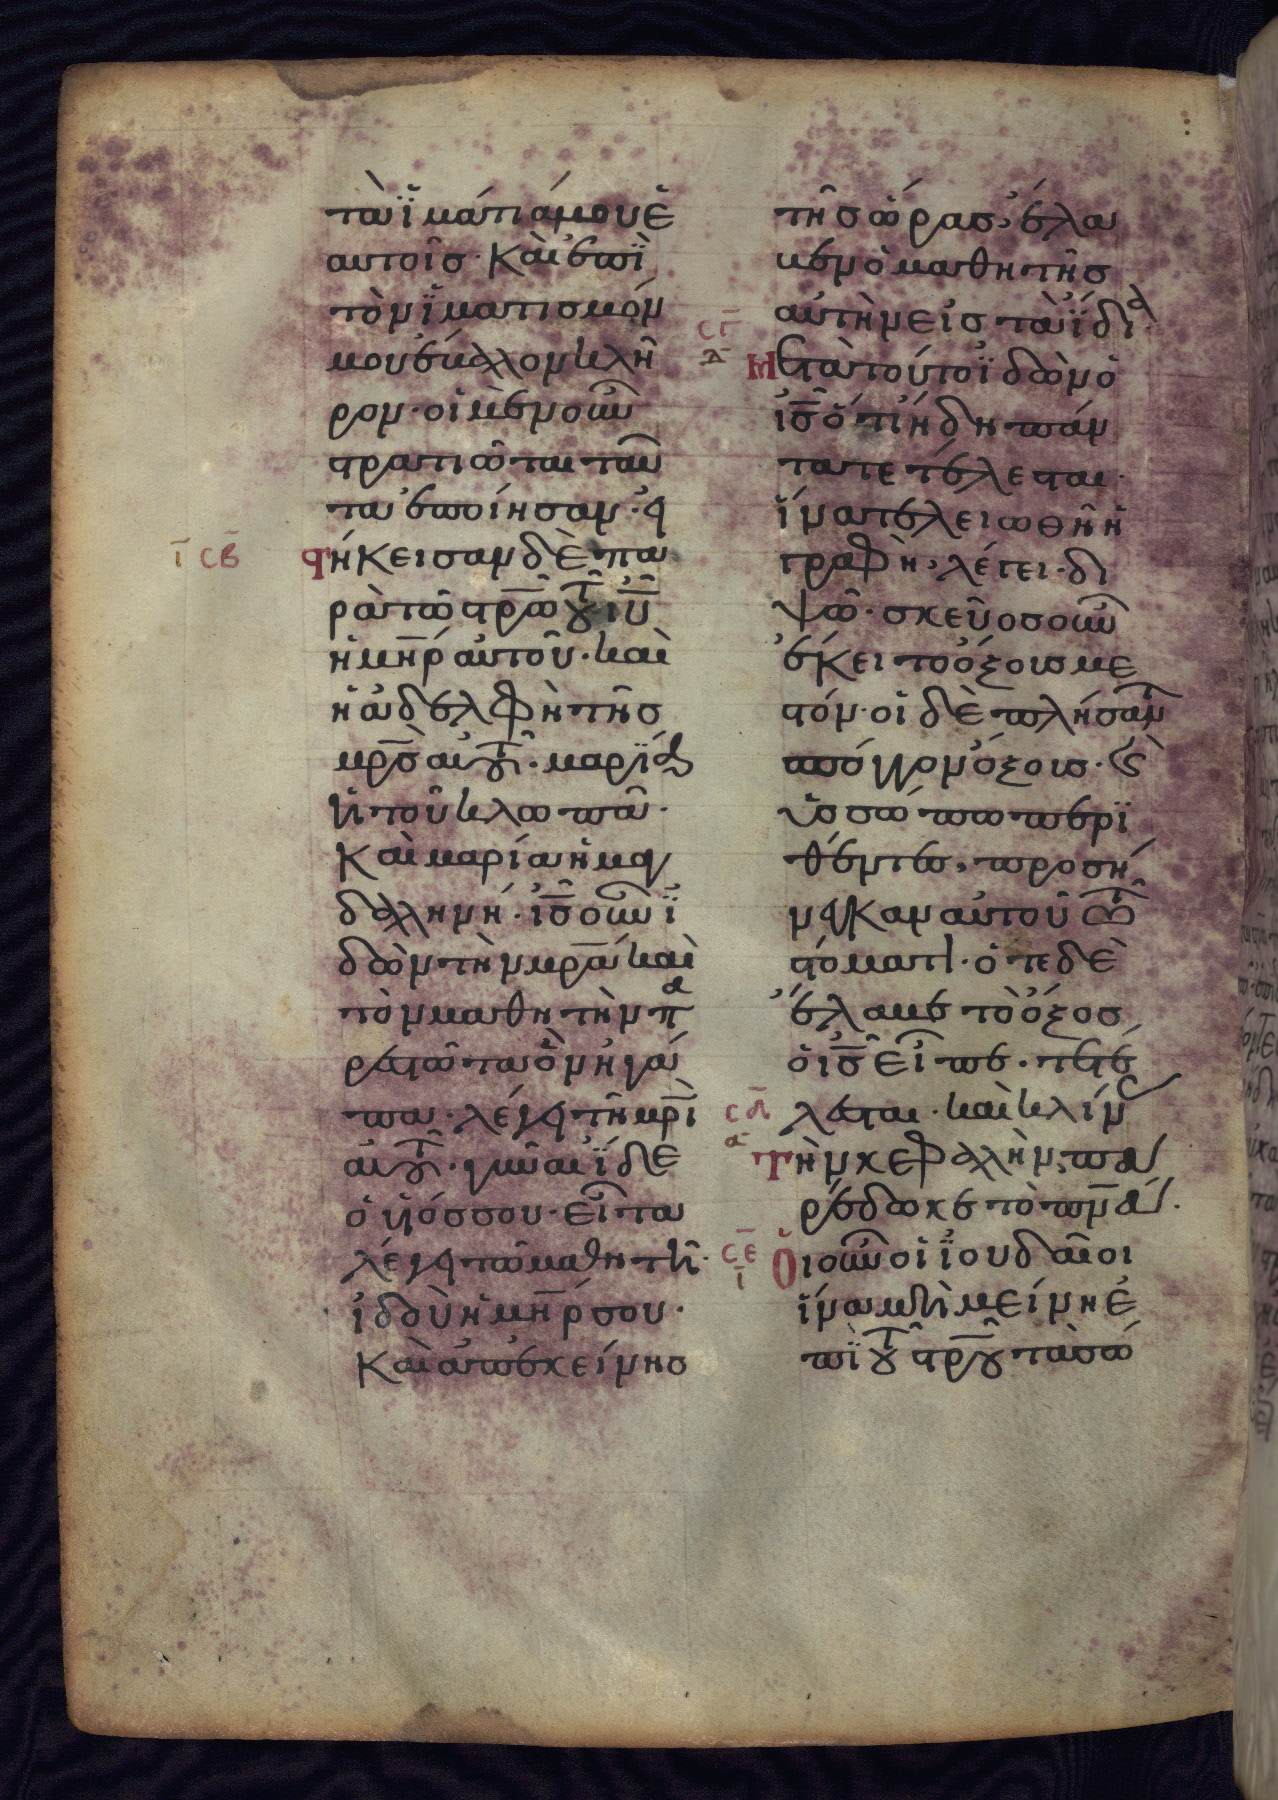 τὰ ἱμάτιά μου ἑ
αυτοῖσ· Καὶ ἐπὶ
τὸν ἱματισμόν
μου ἔβαλλον κλῆ
ρον· οἱ μὲν οὖν
στρατιῶται ταῦ
τα ἐποίησαν· εἱ
ῑ σ̄β̄ στήκεισαν δὲ πα
ρὰ τῶ στρ̅ω τοῦ ι̅υ̅
ἡ μη̅ρ αὐτοῦ· καὶ
ἡ ἀδελφὴ τῆσ
μρ̅σ αὐτοῦ· μαρία
ἡ τοῦ κλωπᾶ·
Καὶ μαρία ἡ μαγ
δαλημνή· ι̅σ̅ οὖν ἰ
δὼν τὴν μρ̅α καὶ
τὸν μαθητὴν πα
ρεστῶτα ὃν ἠγά
πα· λέγει τῆ μρ̅ι
αὐτοῦ· γύναι ἴδε
ὁ υἱόσ σου· εἶτα
λέγει τῶ μαθητῆ·
ἰδοὺ ἡ μη̅ρ σου·
Καὶ ἀπ' ἐκείνησ
τῆσ ὥρασ, ἔλα
βεν ὁ μαθητὴσ
αὐτὴν εἰσ τὰ ἴδια
σ̄γ̄ ᾱ Μετὰ τοῦτο ἰδὼν ὁ
ι̅σ̅ ὅτι ἤδη πάν
τα τετέλεσται·
ἵνα τελειωθῆ ἡ
γραφὴ, λέγει· δι
ψῶ· σκεῦοσ οὖν
ἔκειτο ὄξουσ με
στόν· οἱ δὲ πλήσαντεσ
σπόγγον ὄξουσ· καὶ
ὑσσώπω περι
θέντεσ, προσή
νεγκαν αὐτοῦ τῶ
στόματι· ὅτε δὲ
ἔλαβε τὸ ὄξοσ
ὁ ι̅σ̅ εἶπε· τετέ
σ̄δ̄ λεσται· καὶ κλίνασ
ᾱ Τὴν κεφαλὴν, πα
ρέδωκε τὸ πν̅α·
σ̄ε̄ Οἱ οὖν ἰουδαῖοι
ῑ ἵνα μὴ μείνη ἐ
πὶ τοῦ στρ̅ου τὰ σώ